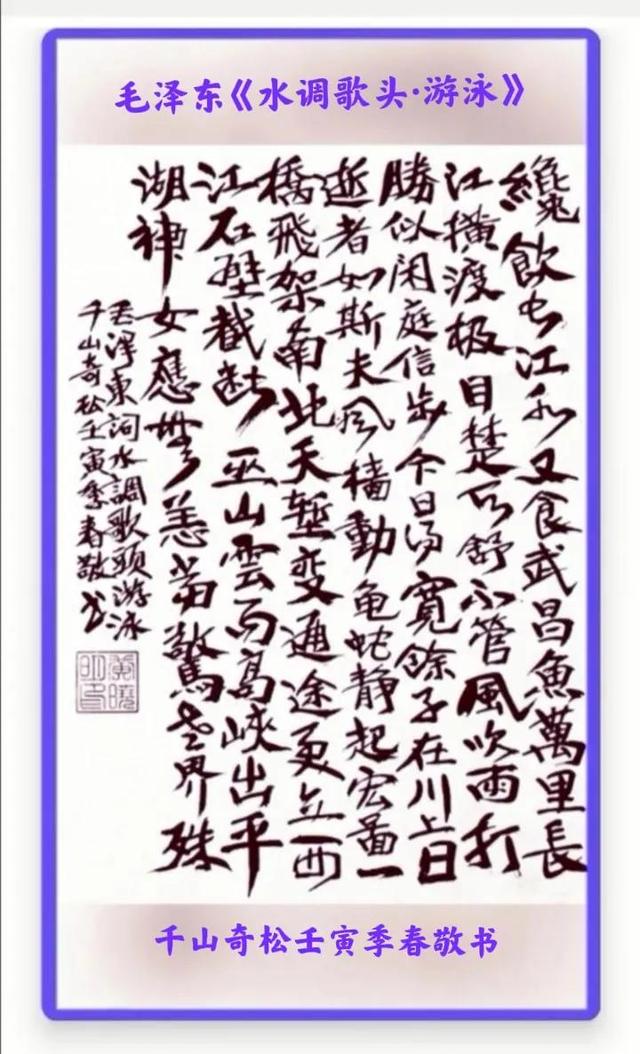 毛泽东《水调歌头·游泳》
纔飲长江水又食武昌魚萬里長
江橫渡极目楚天舒不管風吹雨打
勝似闲庭信步今日得寬餘子在川上曰
逝者如斯夫风檣動龟蛇静起宏图一
橋飛架南北天塹变通途更立西
江石壁截断巫山雲雨高峽出平
湖神女應無恙當驚世界殊
毛澤東詞水調歌頭游泳
千山奇松壬寅季春敬书
千山奇松壬寅季春敬书